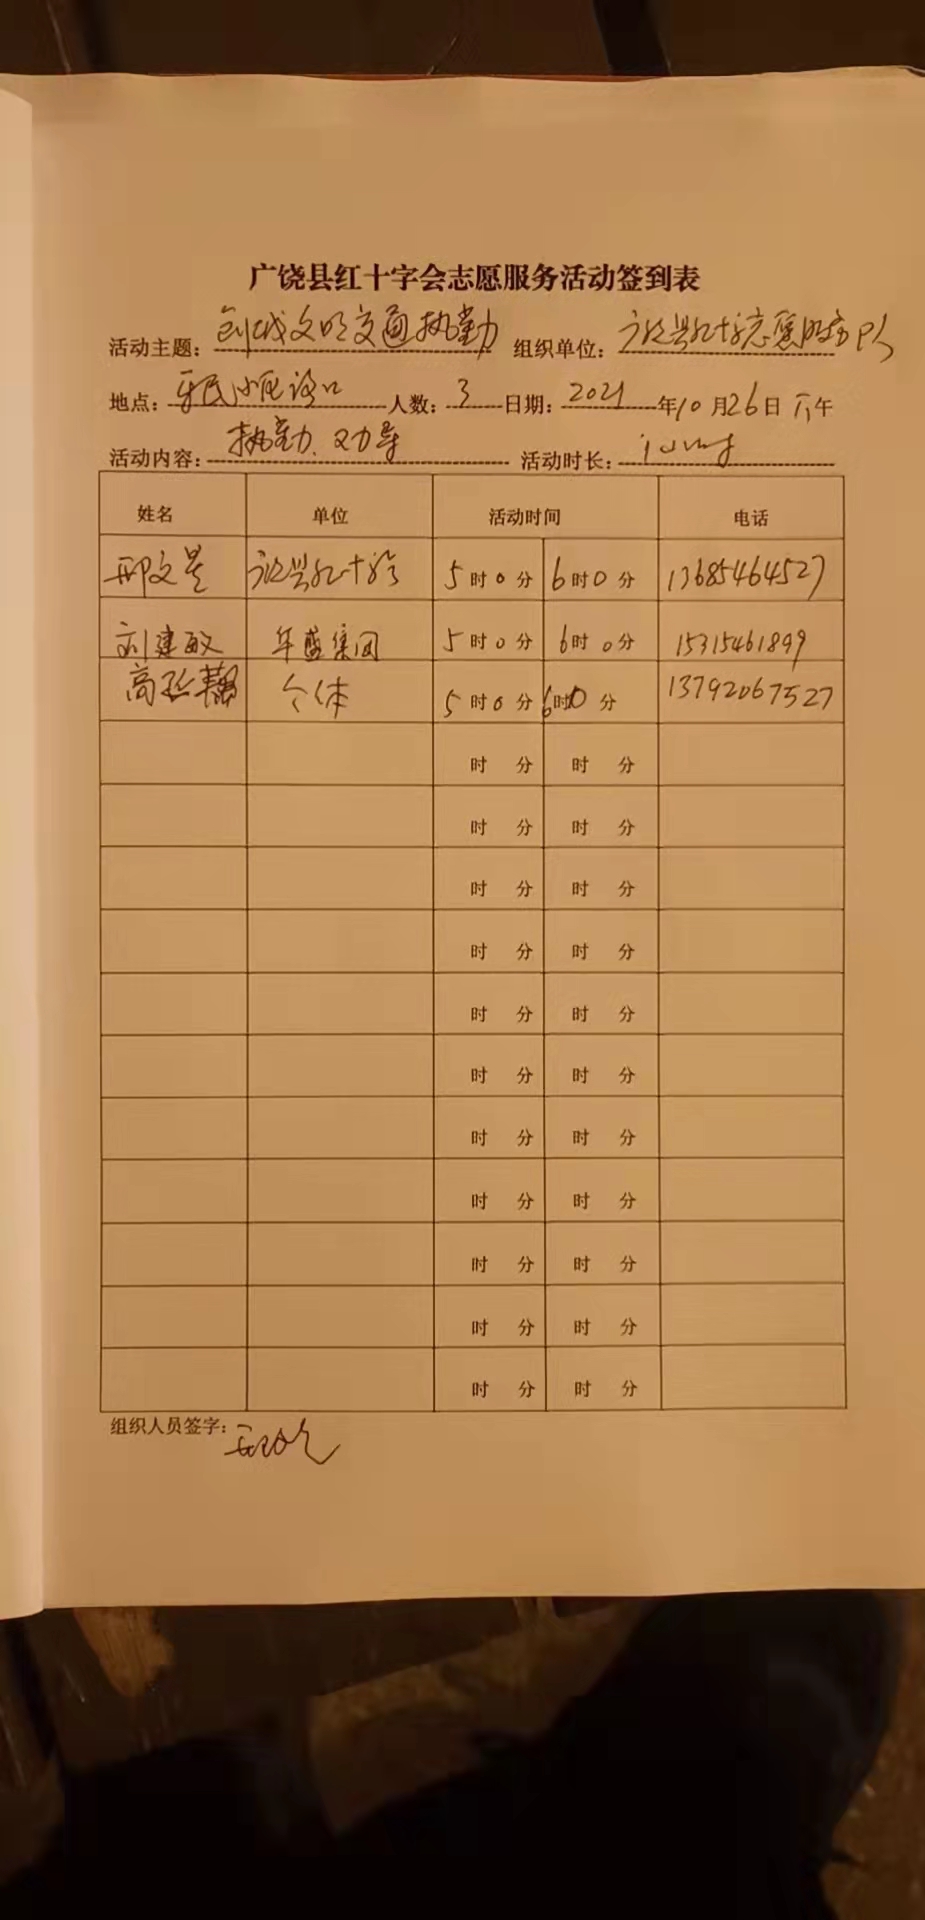 广饶县红十字会志愿服务活动签到表
活动主题：创城文明交通执勤 组织单位：志愿服务队
地点：路口 人数：3 日期：2021年10月26日下午
活动内容：执勤、劝导 活动时长：
姓名 单位 活动时间 电话
邢文 5时0分 6时0分 13685464527
刘建敏 华盛集团 5时0分 6时0分 15315461899
高 个体 5时0分 6时0分 13792067527
时 分 时 分
时 分 时 分
时 分 时 分
时 分 时 分
时 分 时 分
时 分 时 分
时 分 时 分
时 分 时 分
时 分 时 分
时 分 时 分
时 分 时 分
组织人员签字：